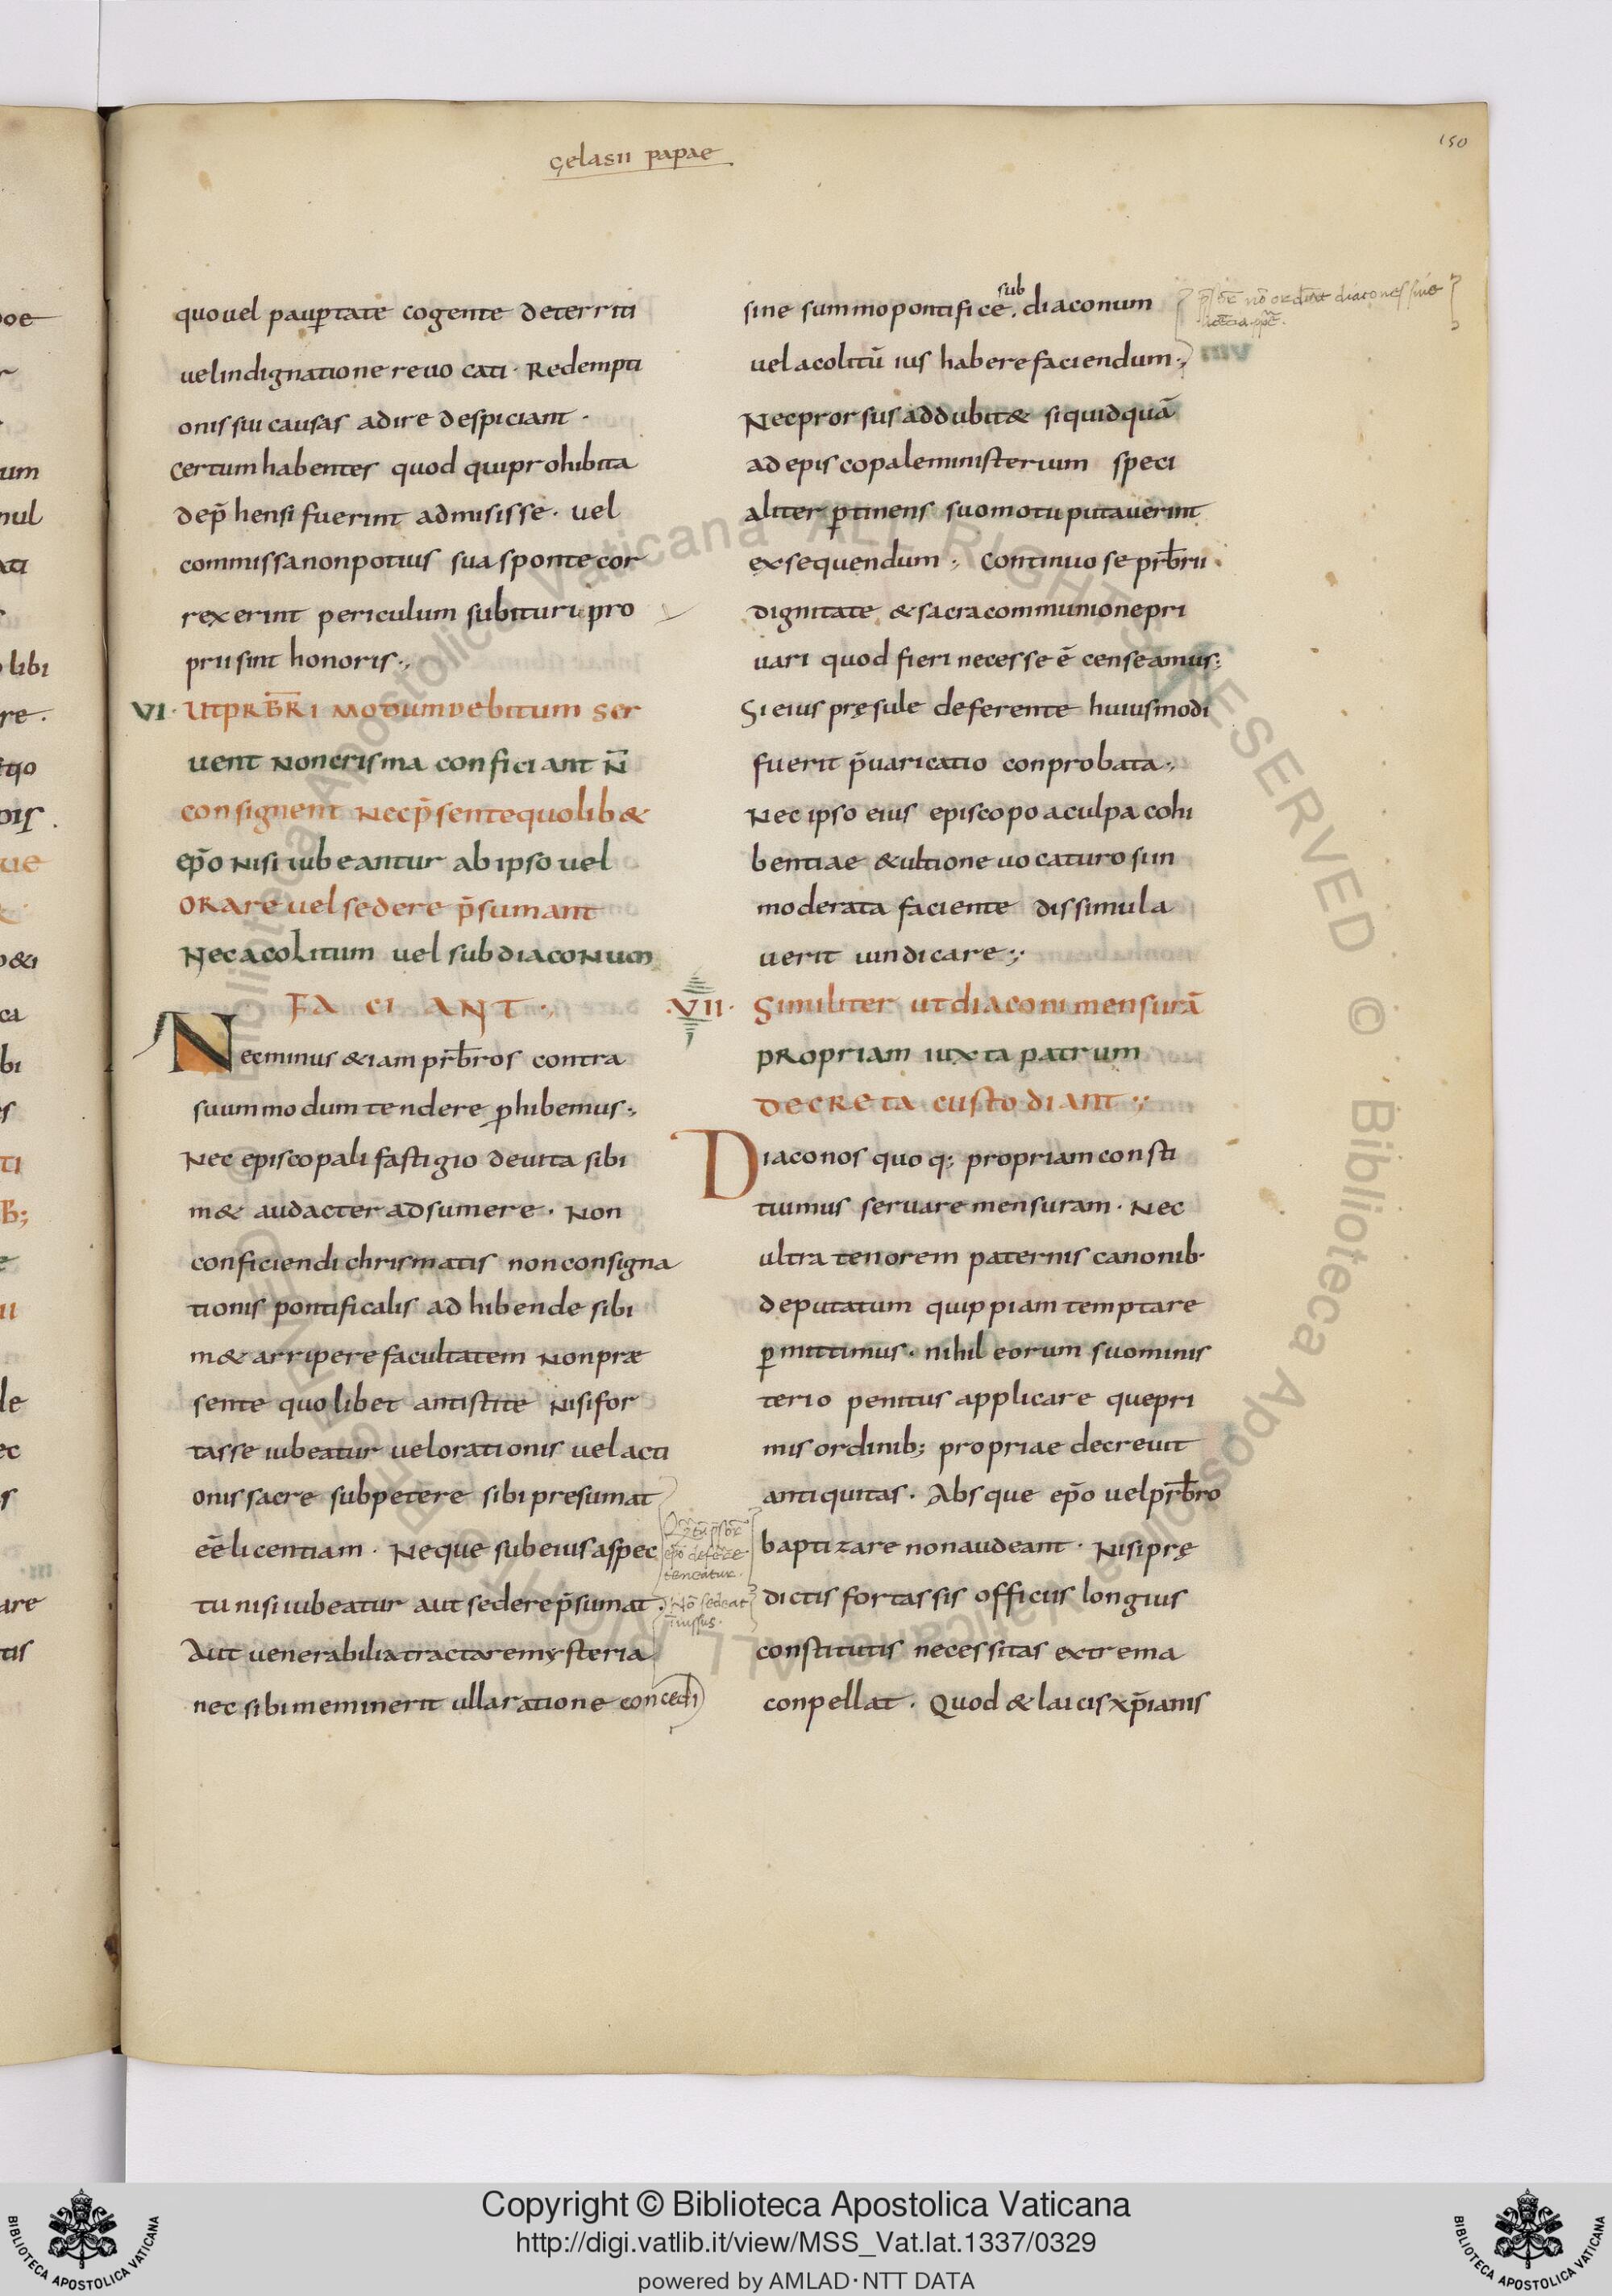 gelasii papae
150
quouel paup̱tate cogente deterriti
uel indignatione reuocati · Redempti
onis sui causas adire despiciant ·
certum habentes quod qui prohibita
dep̄hensi fuerint admisisse · uel
commissa non potius sua sponte cor
rexerint periculum subituri pro
prii sint honoris ·,
VI · Ut prb̄ri modum debitum ser
uent non crisma conficiant n̄
consignent nec p̄sente quolib&
ep̄o nisi iubeantur ab ipso uel
orare uel sedere p̄sumant
Nec acolitum uel subdiaconum
FACIANT ·,
Nec minus &iam prb̄ros contra
suum modum tendere ꝓhibemus ·,
Nec episcopali fastigio deuita sibi
m& audacter adsumere · Non
conficiendi chrismatis non consigna
tionis pontificalis adhibende sibi
m& arripere facultatem Non præ
sente quolibet antistite Nisi for
tasse iubeatur uel orationis uel acti
onis sacre subpetere sibi presumat
eē licentiam · Neque sub eius aspec
tu nisi iubeatur aut sedere p̄sumat ·
Aut uenerabilia tractare mysteria
nec sibi meminerit ulla ratione concedi
teneatur.
Nō sedeat
sine summo pontifice, sub diaconum
uel acolitū ius habere faciendum ·,
Nec prorsus addubit& si quid quā
ad episcopale ministerium speci
aliter ꝑtinens suo motu putauerint
exsequendum ·, Continuo se prb̄rii
dignitate & sacra communione pri
uari quod fieri necesse ē censeamus;
Si eius pręsule deferente huiusmodi
fuerit p̄uaricatio conprobata ·,
Nec ipso eius episcopo a culpa cohi
bentiae & ultione uocaturo si in
moderata faciente dissimula
uerit uindicare ;·
· VII · Similiter ut diaconi mensurā
propriam iuxta patrum
decreta custodiant ;·
Diaconos quoq; propriam consti
tiumus seruare mensuram · Nec
ultra tenorem paternis canonib·
deputatum quippiam temptare
ꝑmittimus · nihil eorum suo minis
terio penitus applicare que pri
mis ordinib; propriae decreuit
antiquitas · Absque ep̄o uel prb̄ro
baptizare non audeant · Nisi prę
dictis fortassis officiis longius
constitutis necessitas extrema
conpellat · Quod & laicis xp̄ianis
Copyright © Biblioteca Apostolica Vaticana
http://digi.vatlib.it/view/MSS_Vat.lat.1337/0329
powered by AMLAD·NTT DATA
BIBLIOTECA APOSTOLICA VATICANA
BIBLIOTECA APOSTOLICA VATICANA